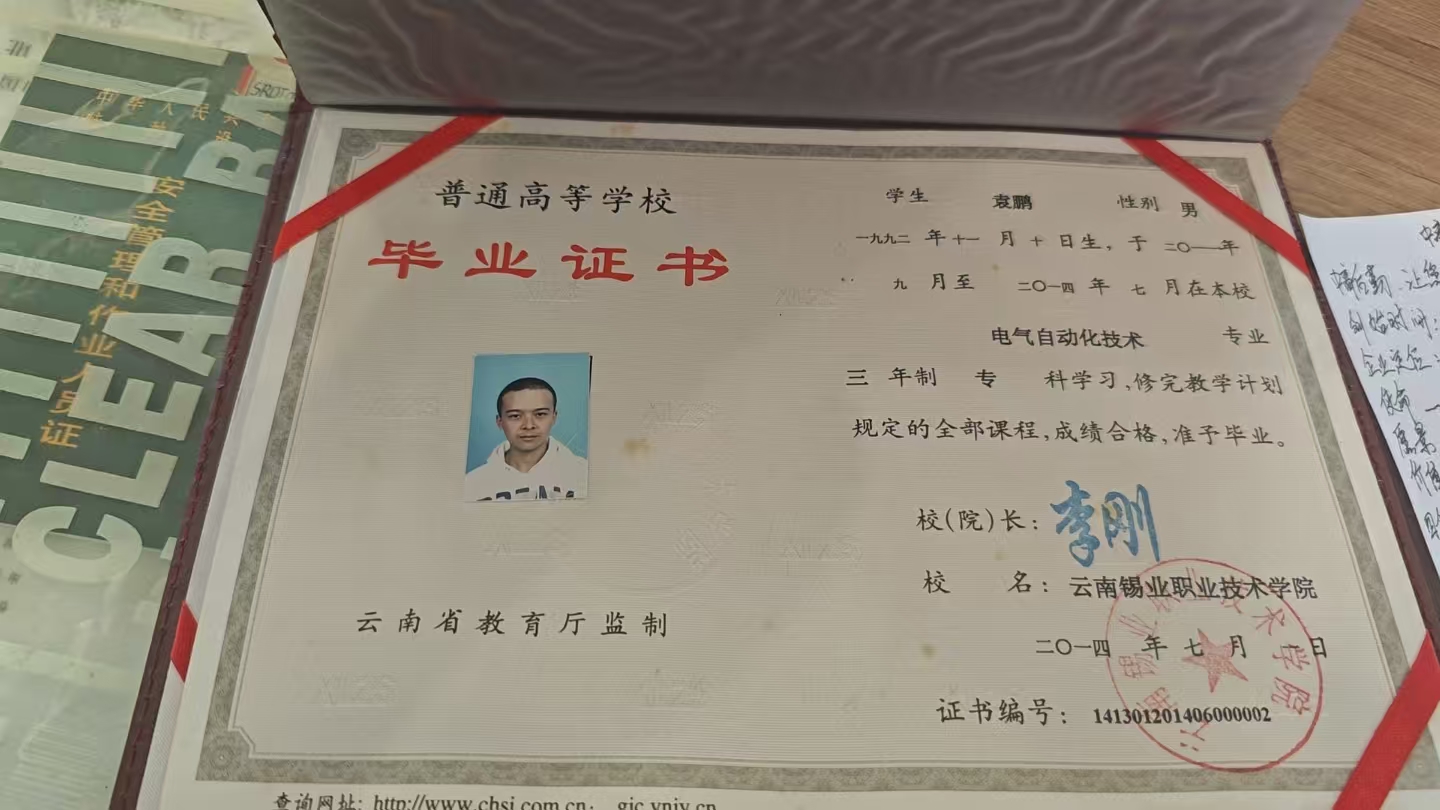 普通高等学校
毕业证书
云南省教育厅监制
学生 袁鹏 性别 男
一九九二 年 十一 月 十 日生，于 二〇一一年
九 月至 二〇一四 年 七 月在本校
电气自动化技术 专业
三 年制 专 科学习，修完教学计划
规定的全部课程，成绩合格，准予毕业。
校(院)长：李刚
校 名：云南锡业职业技术学院
二〇一四 年 七 月 一 日
证书编号：141301201406000002
查询网址: http://www.chsi.com.cn;
云南锡业职业技术学院
中华人民共
安全管理和作业人员证
CLEAR
SRDT